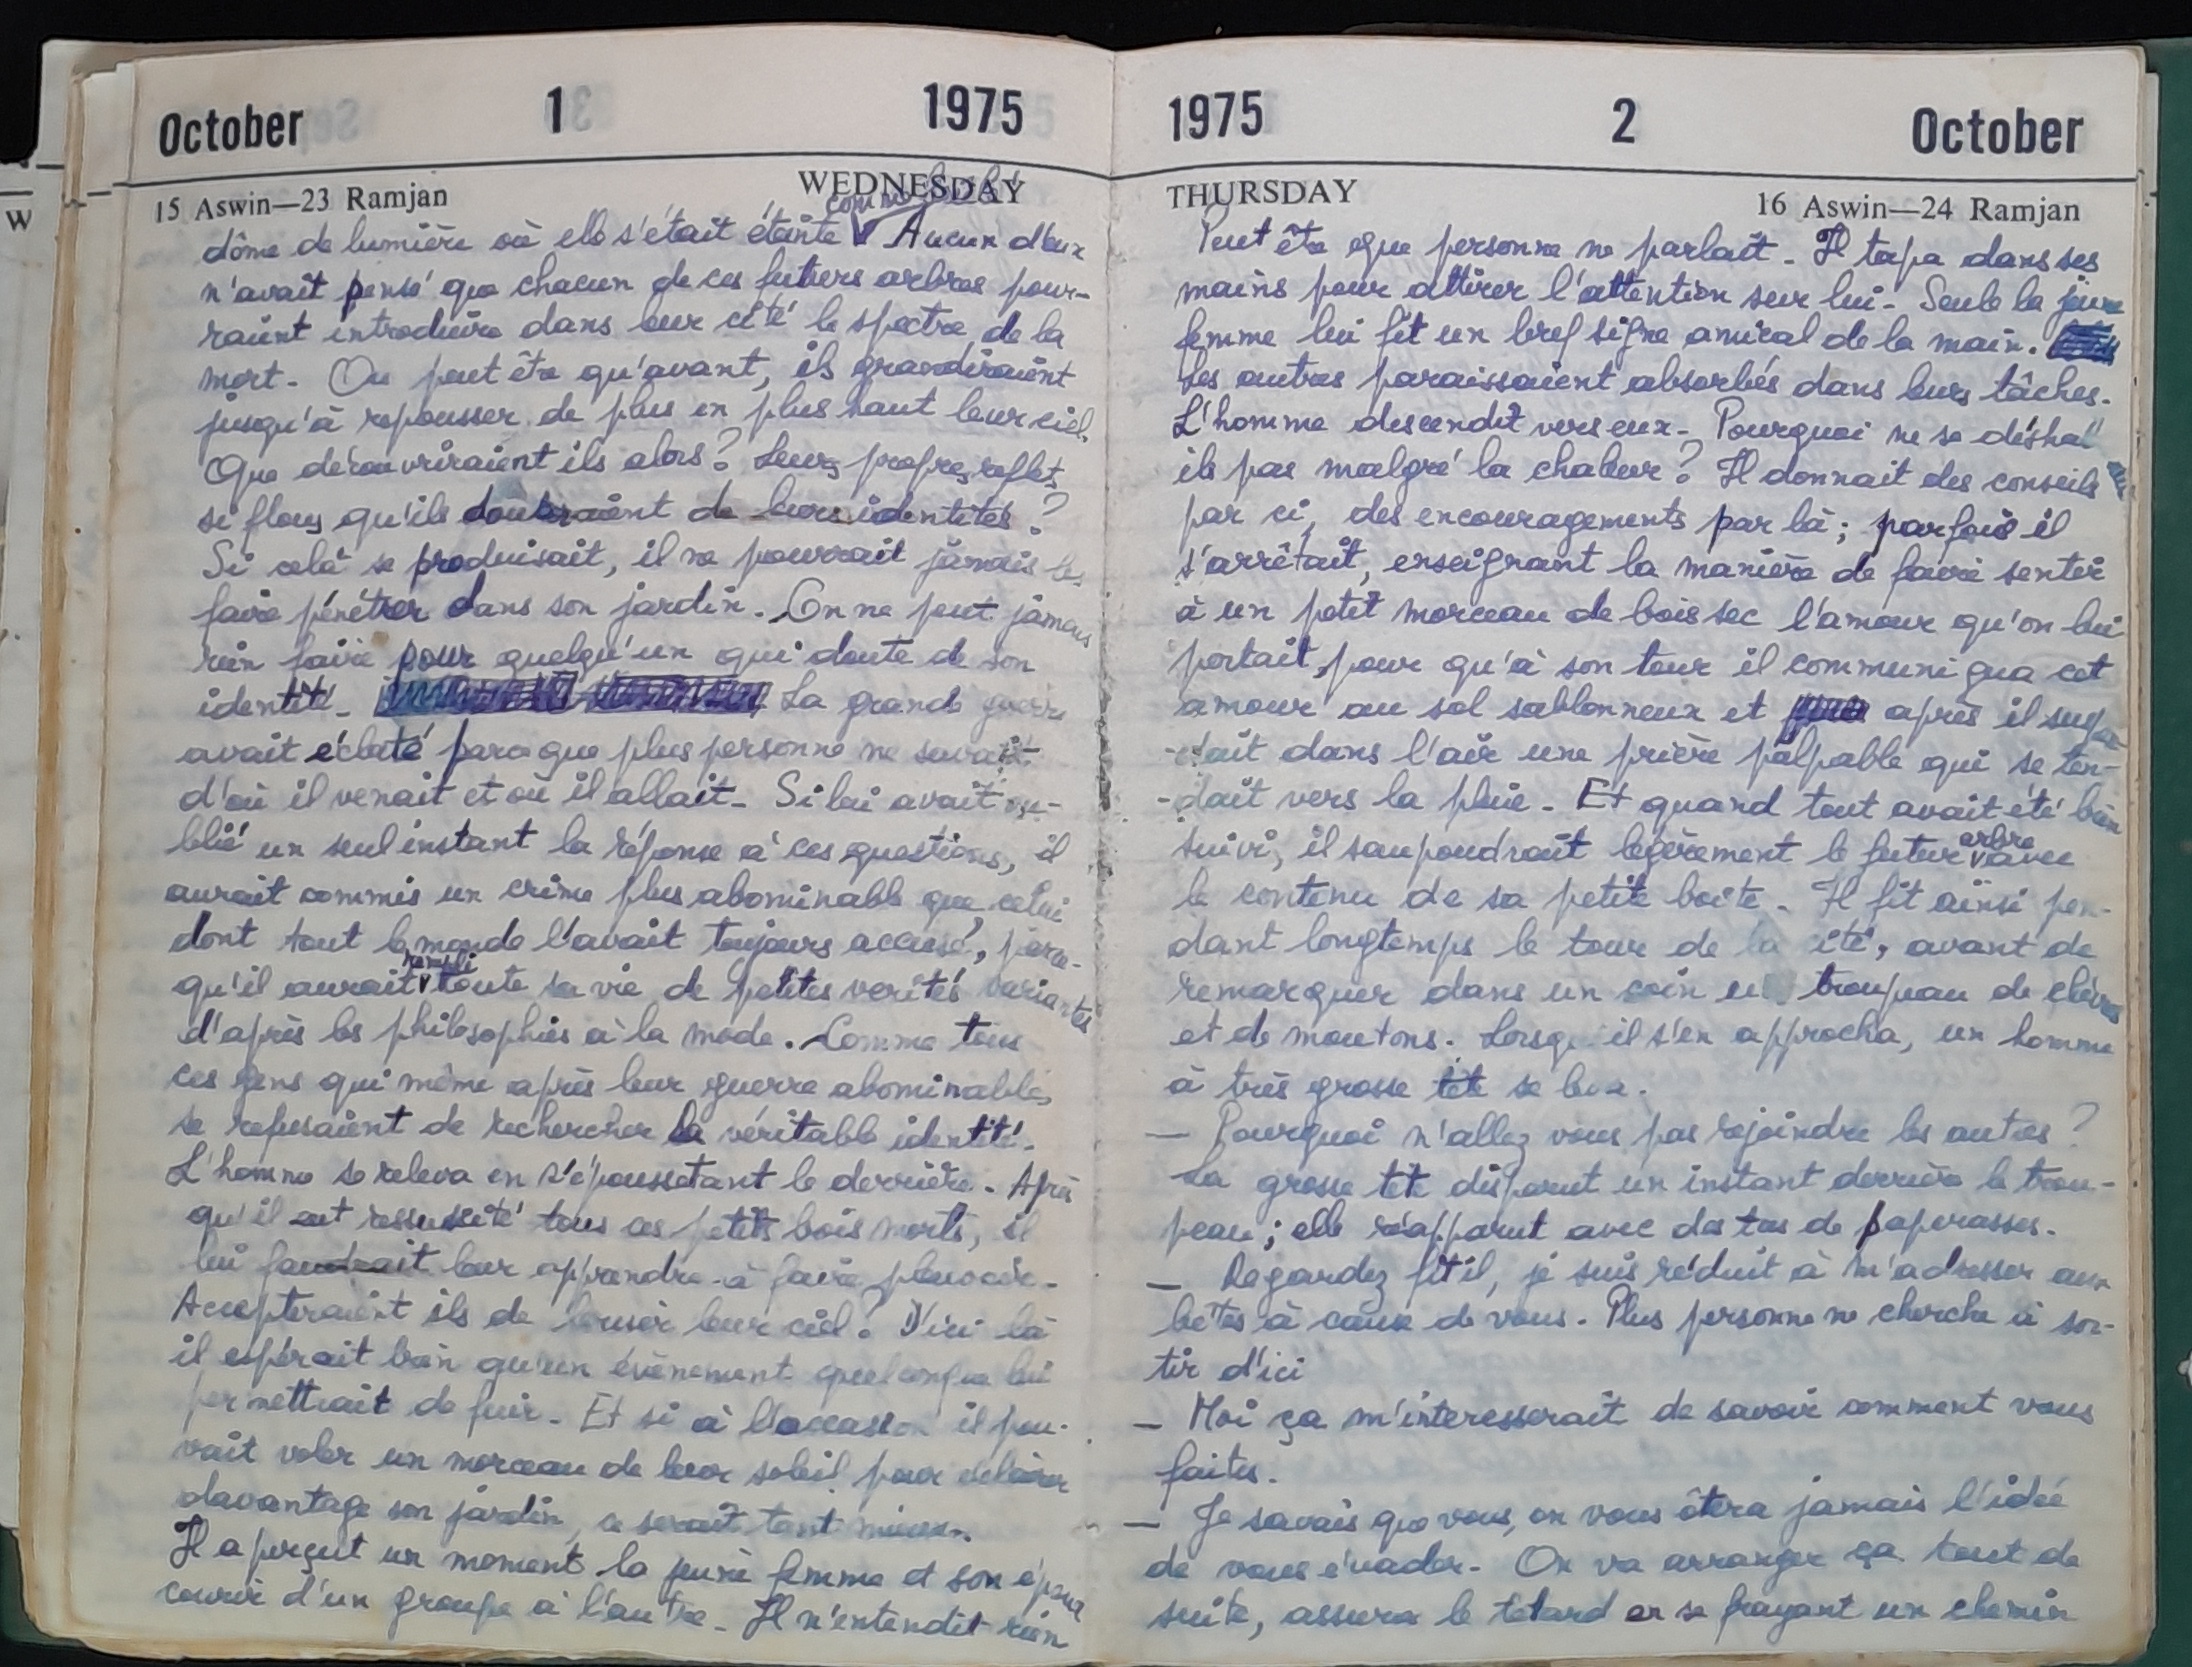 October 1 1975
15 Aswin—23 Ramjan WEDNESDAY
dôme de lumière où elle s'était éteinte Aucun d'eux
n'avait pensé que chacun de ces futurs arbres pour-
raient introduire dans leur cité le spectre de la
mort. Ou peut être qu'avant, ils grandiraient
jusqu'à repousser de plus en plus haut leur ciel.
Que découvriraient ils alors? Leurs propres reflets
si flous qu'ils douteraient de leurs identités?
Si celà se produisait, il ne pourrait jamais les
faire pénétrer dans son jardin. On ne peut jamais
rien faire pour quelqu'un qui doute de son
identité. La grande guerre
avait éclaté parce que plus personne ne savait
d'où il venait et où il allait. Si lui avait ou-
blié un seul instant la réponse à ces questions, il
aurait commis un crime plus abominable que celui
dont tout le monde l'avait toujours accusé, parce-
qu'il aurait rempli toute sa vie de petites verités variantes
d'après les philosophies à la mode. Comme tous
ces gens qui même après leur guerre abominable,
se refusaient de rechercher la véritable identité.
L'homme se releva en s'époussetant le derrière. Après
qu'il eut ressuscité tous ces petits bois morts, il
lui faudrait leur apprendre à faire pleuvoir.
Accepteraient ils de leur ciel? D'ici là
il espérait bien qu'un évènement quelconque lui
permettrait de fuir. Et si à l'occasion il pou-
vait voler un morceau de leur soleil pour éclairer
davantage son jardin, ce serait tant mieux.
Il aperçut un moment la jeune femme et son époux
courir d'un groupe à l'autre. Il n'entendit rien
1975 2 October
THURSDAY 16 Aswin—24 Ramjan
Peut être que personne ne parlait. Il tapa dans ses
mains pour attirer l'attention sur lui. Seule la jeune
femme lui fit un bref signe amical de la main.
Les autres paraissaient absorbés dans leurs tâches.
L'homme descendit vers eux. Pourquoi ne se déshal
ils pas malgré la chaleur? Il donnait des conseils
par ci, des encouragements par là; parfois il
s'arrêtait, enseignant la manière de faire sentir
à un petit morceau de bois sec l'amour qu'on lui
portait, pour qu'à son tour il communiqua cet
amour au sol sablonneux et après il
dans l'air une prière palpable qui se ten-
-dait vers la pluie. Et quand tout avait été bien
suivi, il saupoudrait legèrement le futur arbre avec
le contenu de sa petite boite. Il fit ainsi pen-
dant longtemps le tour de la cité, avant de
remarquer dans un coin un troupeau de chèvres
et de moutons. Lorsqu'il s'en approcha, un homme
à très grosse tête se leva.
— Pourquoi n'allez vous pas rejoindre les autres?
La grosse tête disparut un instant derrière le trou-
peau; elle réapparut avec des tas de paperasses.
— Regardez fit il, je suis réduit à m'adresser aux
bêtes à cause de vous. Plus personne ne cherche à sor-
tir d'ici
— Moi ça m'interesserait de savoir comment vous
faites.
— Je savais que vous, on vous ôtera jamais l'idée
de vous évader. On va arranger ça tout de
suite, assura le tetard en se frayant un chemin